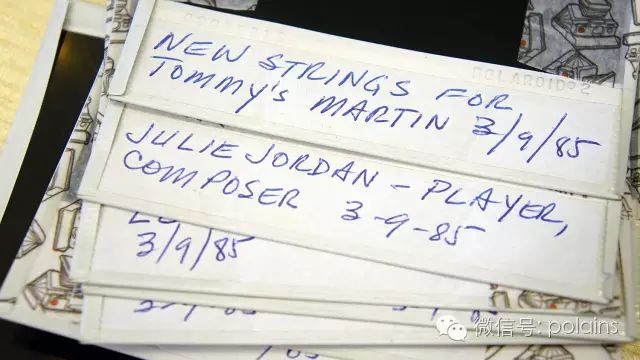 POLAROID
NEW STRINGS FOR
Tommy's MARTIN 3/9/85
JULIE JORDAN - PLAYER,
COMPOSER 3-9-85
3/9/85
微信号: polcins